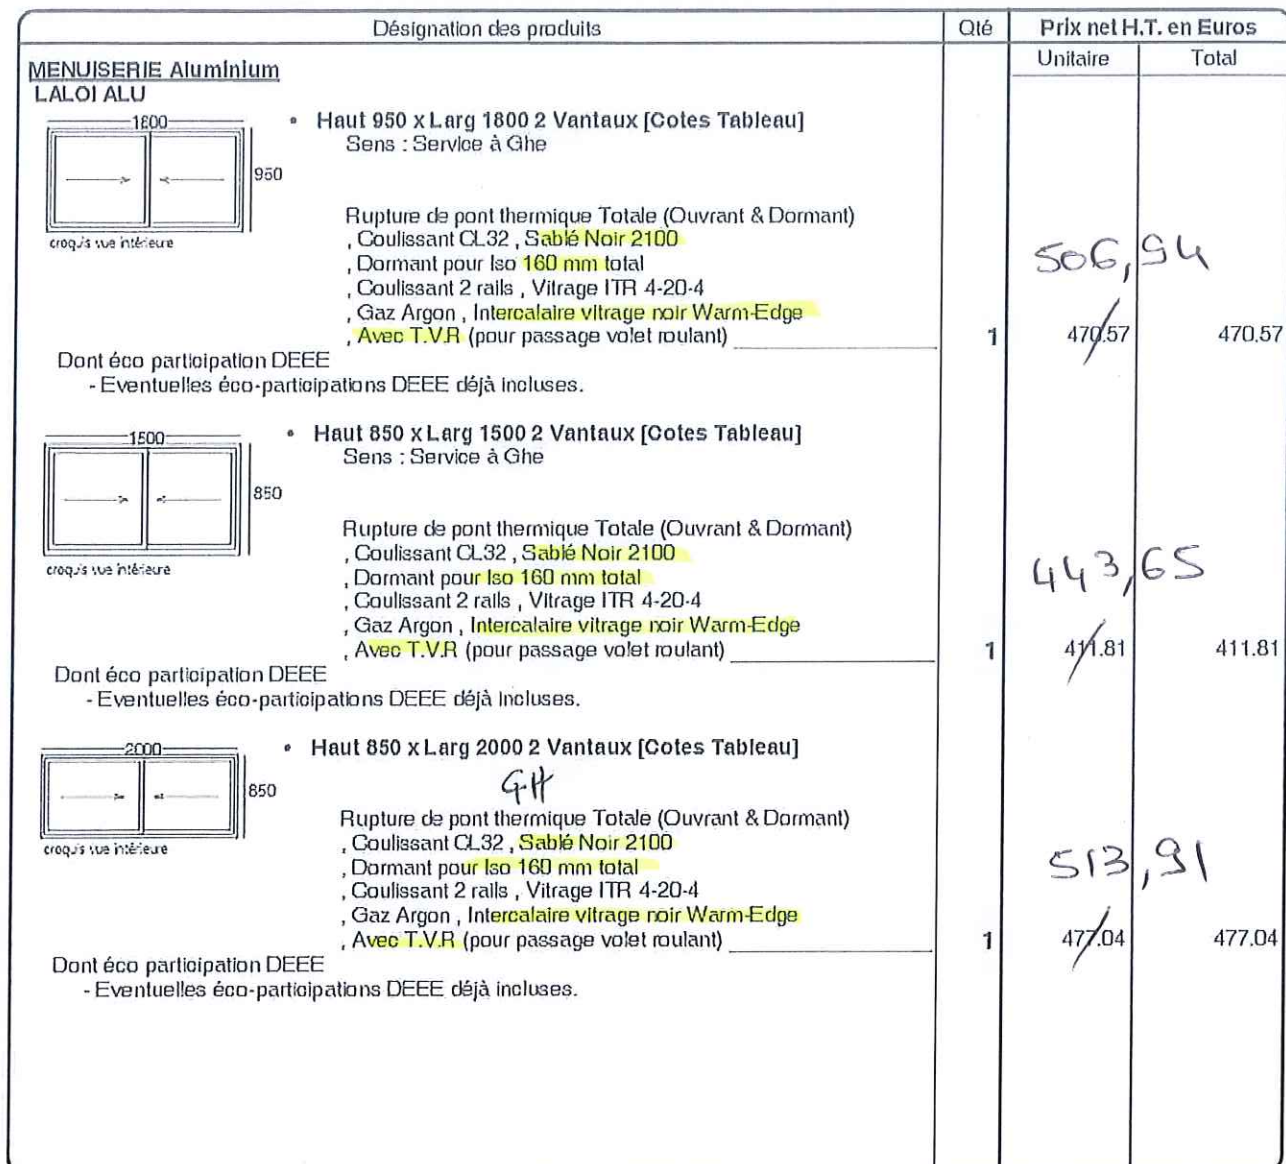 Désignation des produits Qté Prix net H.T. en Euros
Unitaire Total
MENUISERIE Aluminium
LALOI ALU
1800
950
croquis vue intérieure
• Haut 950 x Larg 1800 2 Vantaux [Cotes Tableau]
Sens : Service à Ghe
Rupture de pont thermique Totale (Ouvrant & Dormant)
, Coulissant CL32 , Sablé Noir 2100
, Dormant pour Iso 160 mm total
506,94
, Coulissant 2 rails , Vitrage ITR 4-20-4
, Gaz Argon , Intercalaire vitrage noir Warm-Edge
, Avec T.V.R (pour passage volet roulant) 1 470.57 470.57
Dont éco participation DEEE
- Eventuelles éco-participations DEEE déjà incluses.
1500
850
croquis vue intérieure
• Haut 850 x Larg 1500 2 Vantaux [Cotes Tableau]
Sens : Service à Ghe
Rupture de pont thermique Totale (Ouvrant & Dormant)
, Coulissant CL32 , Sablé Noir 2100
, Dormant pour Iso 160 mm total
443,65
, Coulissant 2 rails , Vitrage ITR 4-20-4
, Gaz Argon , Intercalaire vitrage noir Warm-Edge
, Avec T.V.R (pour passage volet roulant) 1 411.81 411.81
Dont éco participation DEEE
- Eventuelles éco-participations DEEE déjà incluses.
2000
850
croquis vue intérieure
• Haut 850 x Larg 2000 2 Vantaux [Cotes Tableau]
GH
Rupture de pont thermique Totale (Ouvrant & Dormant)
, Coulissant CL32 , Sablé Noir 2100
, Dormant pour Iso 160 mm total
513,91
, Coulissant 2 rails , Vitrage ITR 4-20-4
, Gaz Argon , Intercalaire vitrage noir Warm-Edge
, Avec T.V.R (pour passage volet roulant) 1 477.04 477.04
Dont éco participation DEEE
- Eventuelles éco-participations DEEE déjà incluses.